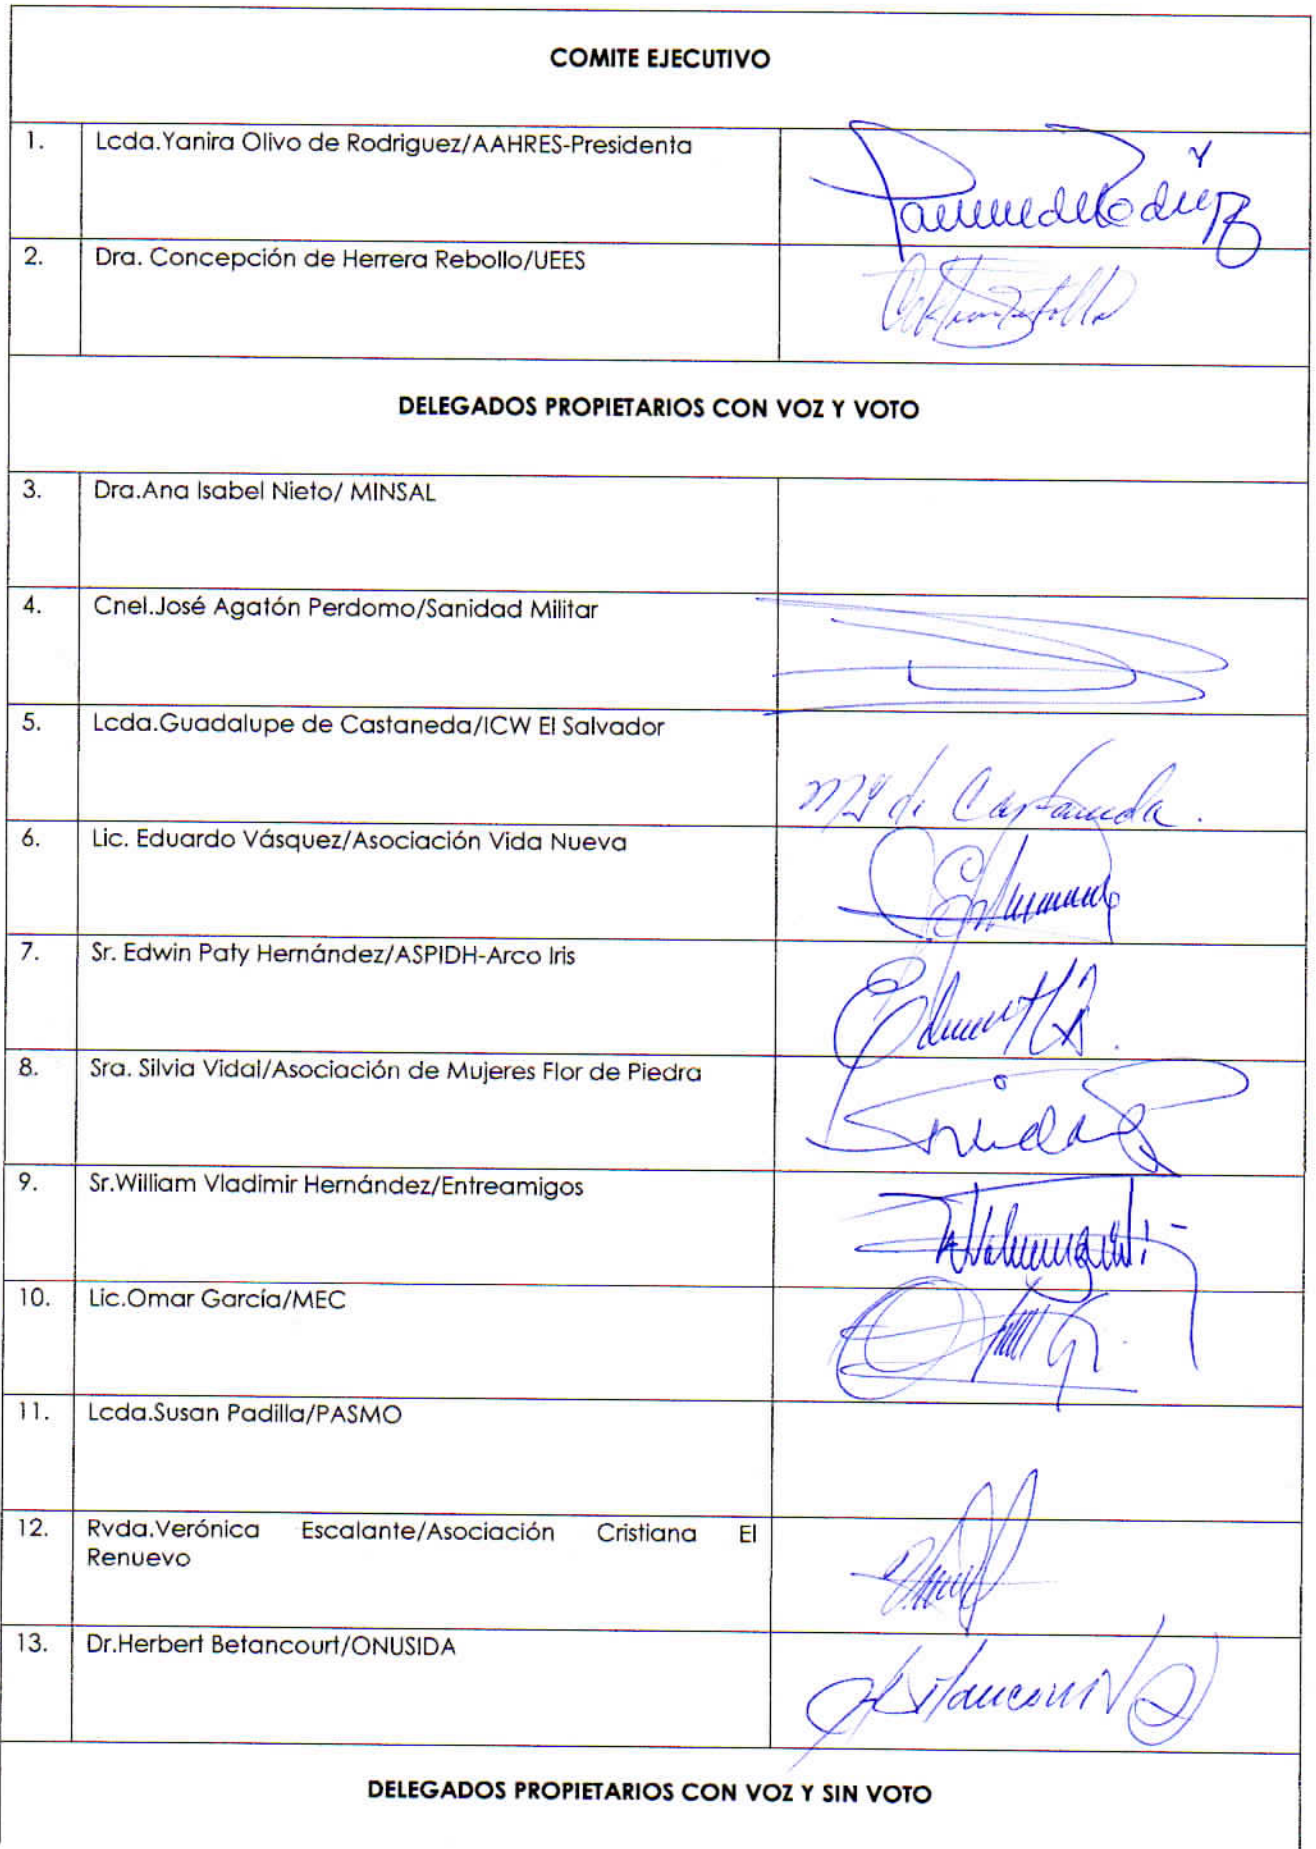 COMITE EJECUTIVO
1. Lcda.Yanira Olivo de Rodriguez/AAHRES-Presidenta
2. Dra. Concepción de Herrera Rebollo/UEES
DELEGADOS PROPIETARIOS CON VOZ Y VOTO
3. Dra.Ana Isabel Nieto/ MINSAL
4. Cnel.José Agatón Perdomo/Sanidad Militar
5. Lcda.Guadalupe de Castaneda/ICW El Salvador
6. Lic. Eduardo Vásquez/Asociación Vida Nueva
7. Sr. Edwin Paty Hernández/ASPIDH-Arco Iris
8. Sra. Silvia Vidal/Asociación de Mujeres Flor de Piedra
9. Sr.William Vladimir Hernández/Entreamigos
10. Lic.Omar García/MEC
11. Lcda.Susan Padilla/PASMO
12. Rvda.Verónica Escalante/Asociación Cristiana El
Renuevo
13. Dr.Herbert Betancourt/ONUSIDA
DELEGADOS PROPIETARIOS CON VOZ Y SIN VOTO